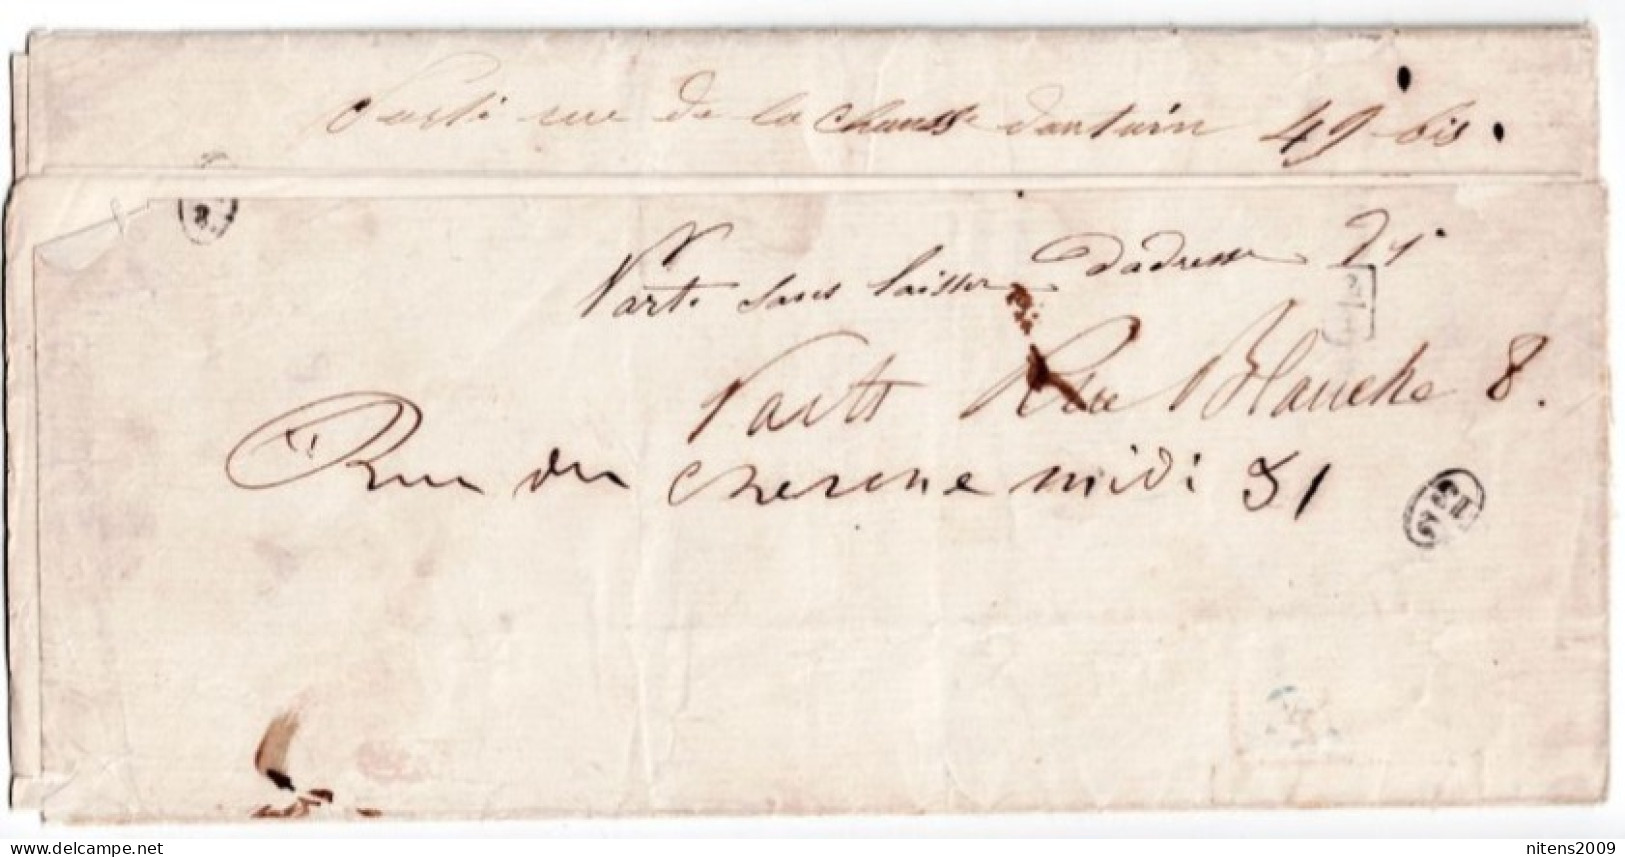 Parti rue de la Chausse dantain 49 bis.
Parti sans laisser dadresse
Parti Rue Blanche 8.
Rue du cherche midi 51
delcampe.net
nitens2009